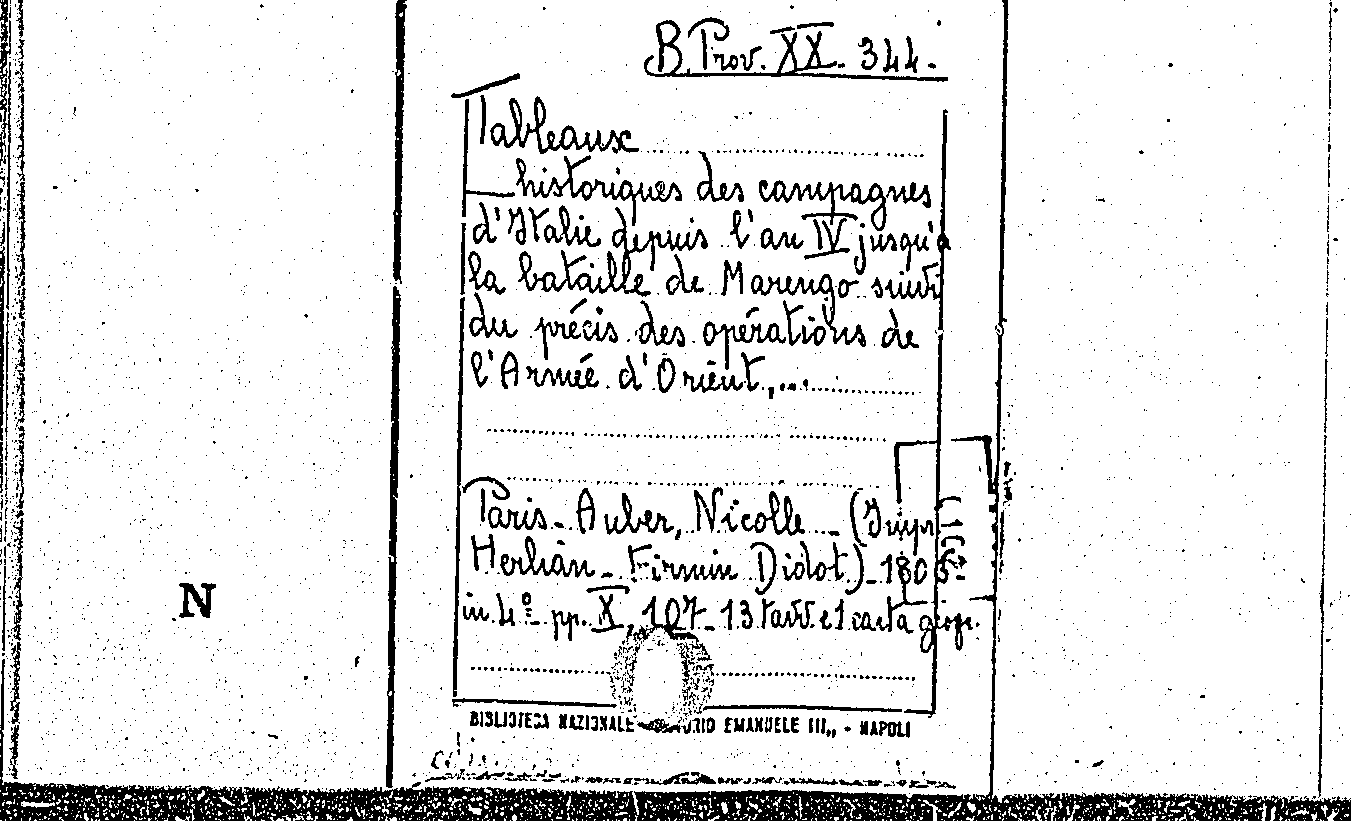 B. Prov. XX. 344.
Tableaux
historiques des campagnes
d'Italie depuis l'an IV jusqu'à
la bataille de Marengo suivi
du précis des opérations de
l'Armée d'Orient,...
Paris - Auber, Nicolle - (Impr.
Herhan - Firmin Didot) - 1806 -
in 4º - pp. X, 107 - 13 tavv e 1 carta geogr.
N
BIBLIOTECA NAZIONALE EMANUELE III,, - NAPOLI